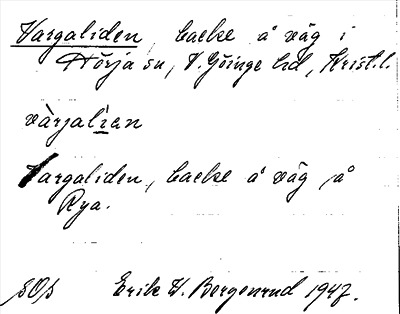 Vargaliden, backe å väg i
Hörja sn, V. Göinge hd, Krist. l.
vàrgalìan
Vargaliden, backe å väg på
Rya.
Erik W. Bergenrud 1947.